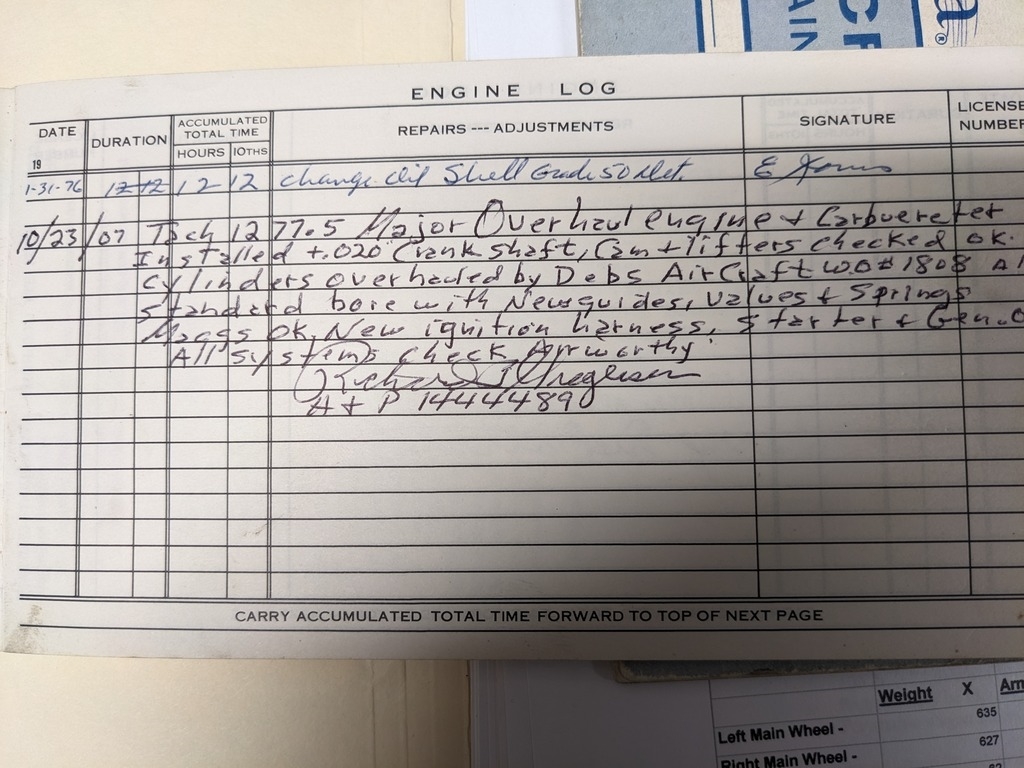 ENGINE LOG
DATE
DURATION
ACCUMULATED TOTAL TIME
HOURS 10THS
REPAIRS --- ADJUSTMENTS
SIGNATURE
LICENSE NUMBER
19
1-31-76 12 12 12 12 Change Oil Shell Grade 50 E
10/23/07 Tach 1277.5 Major Overhaul engine + Carbuereter
Installed +.020 Crankshaft, Cam + lifters checked ok.
Cylinders overhauled by Debs AirCraft W.O# 1808
Standard bore with New guides, Valves + Springs
Maggs OK, New ignition harness, Starter + Gen.
All systems check Airworthy
Richard
A + P 1444489
CARRY ACCUMULATED TOTAL TIME FORWARD TO TOP OF NEXT PAGE
Weight X
635
Left Main Wheel -
627
Right Main Wheel -